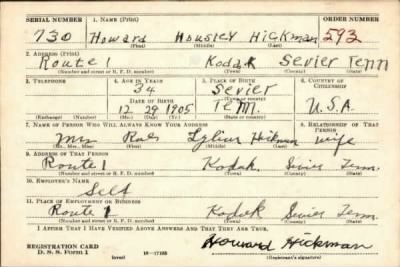 SERIAL NUMBER 1. NAME (Print) ORDER NUMBER
730 Howard Housley Hickman 593
(First) (Middle) (Last)
2. ADDRESS (Print)
Route 1 Kodak Sevier Tenn
(Number and street or R. F. D. number) (Town) (County) (State)
3. TELEPHONE 4. AGE IN YEARS 5. PLACE OF BIRTH 6. COUNTRY OF CITIZENSHIP
34 Sevier
(Town or county)
DATE OF BIRTH
12 29 1905 Tenn. U.S.A.
(Exchange) (Number) (Mo.) (Day) (Yr.) (State or country)
7. NAME OF PERSON WHO WILL ALWAYS KNOW YOUR ADDRESS 8. RELATIONSHIP OF THAT PERSON
Mrs Hickman wife
(Mr., Mrs., Miss) (First) (Middle) (Last)
9. ADDRESS OF THAT PERSON
Route 1 Kodak. Sevier Tenn.
(Number and street or R. F. D. number) (Town) (County) (State)
10. EMPLOYER'S NAME
Self
11. PLACE OF EMPLOYMENT OR BUSINESS
Route 1 Kodak Sevier Tenn.
(Number and street or R. F. D. number) (Town) (County) (State)
I AFFIRM THAT I HAVE VERIFIED ABOVE ANSWERS AND THAT THEY ARE TRUE.
REGISTRATION CARD Howard Hickman
D. S. S. Form 1 (Registrant's signature)